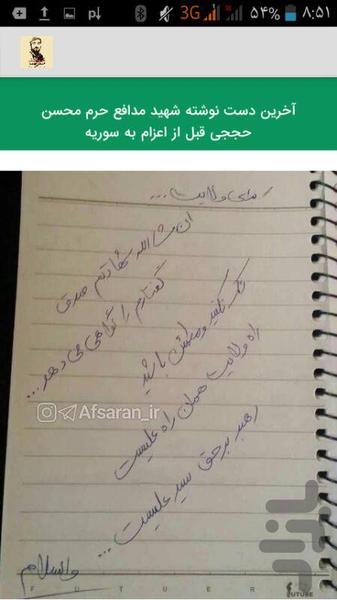 ۸:۵۱
۵۴%
3G
آخرین دست نوشته شهید مدافع حرم محسن
حججی قبل از اعزام به سوریه
برای ولایت...
ان شاءالله شهادتم صدق
گفتارم را گواهی می دهد...
شک نکنید و مطمئن باشید
راه ولایت همان راه علیست
رهبر برحق سید علیست...
والسلام
Afsaran_ir
بازار
FUTUER
FUTUBE